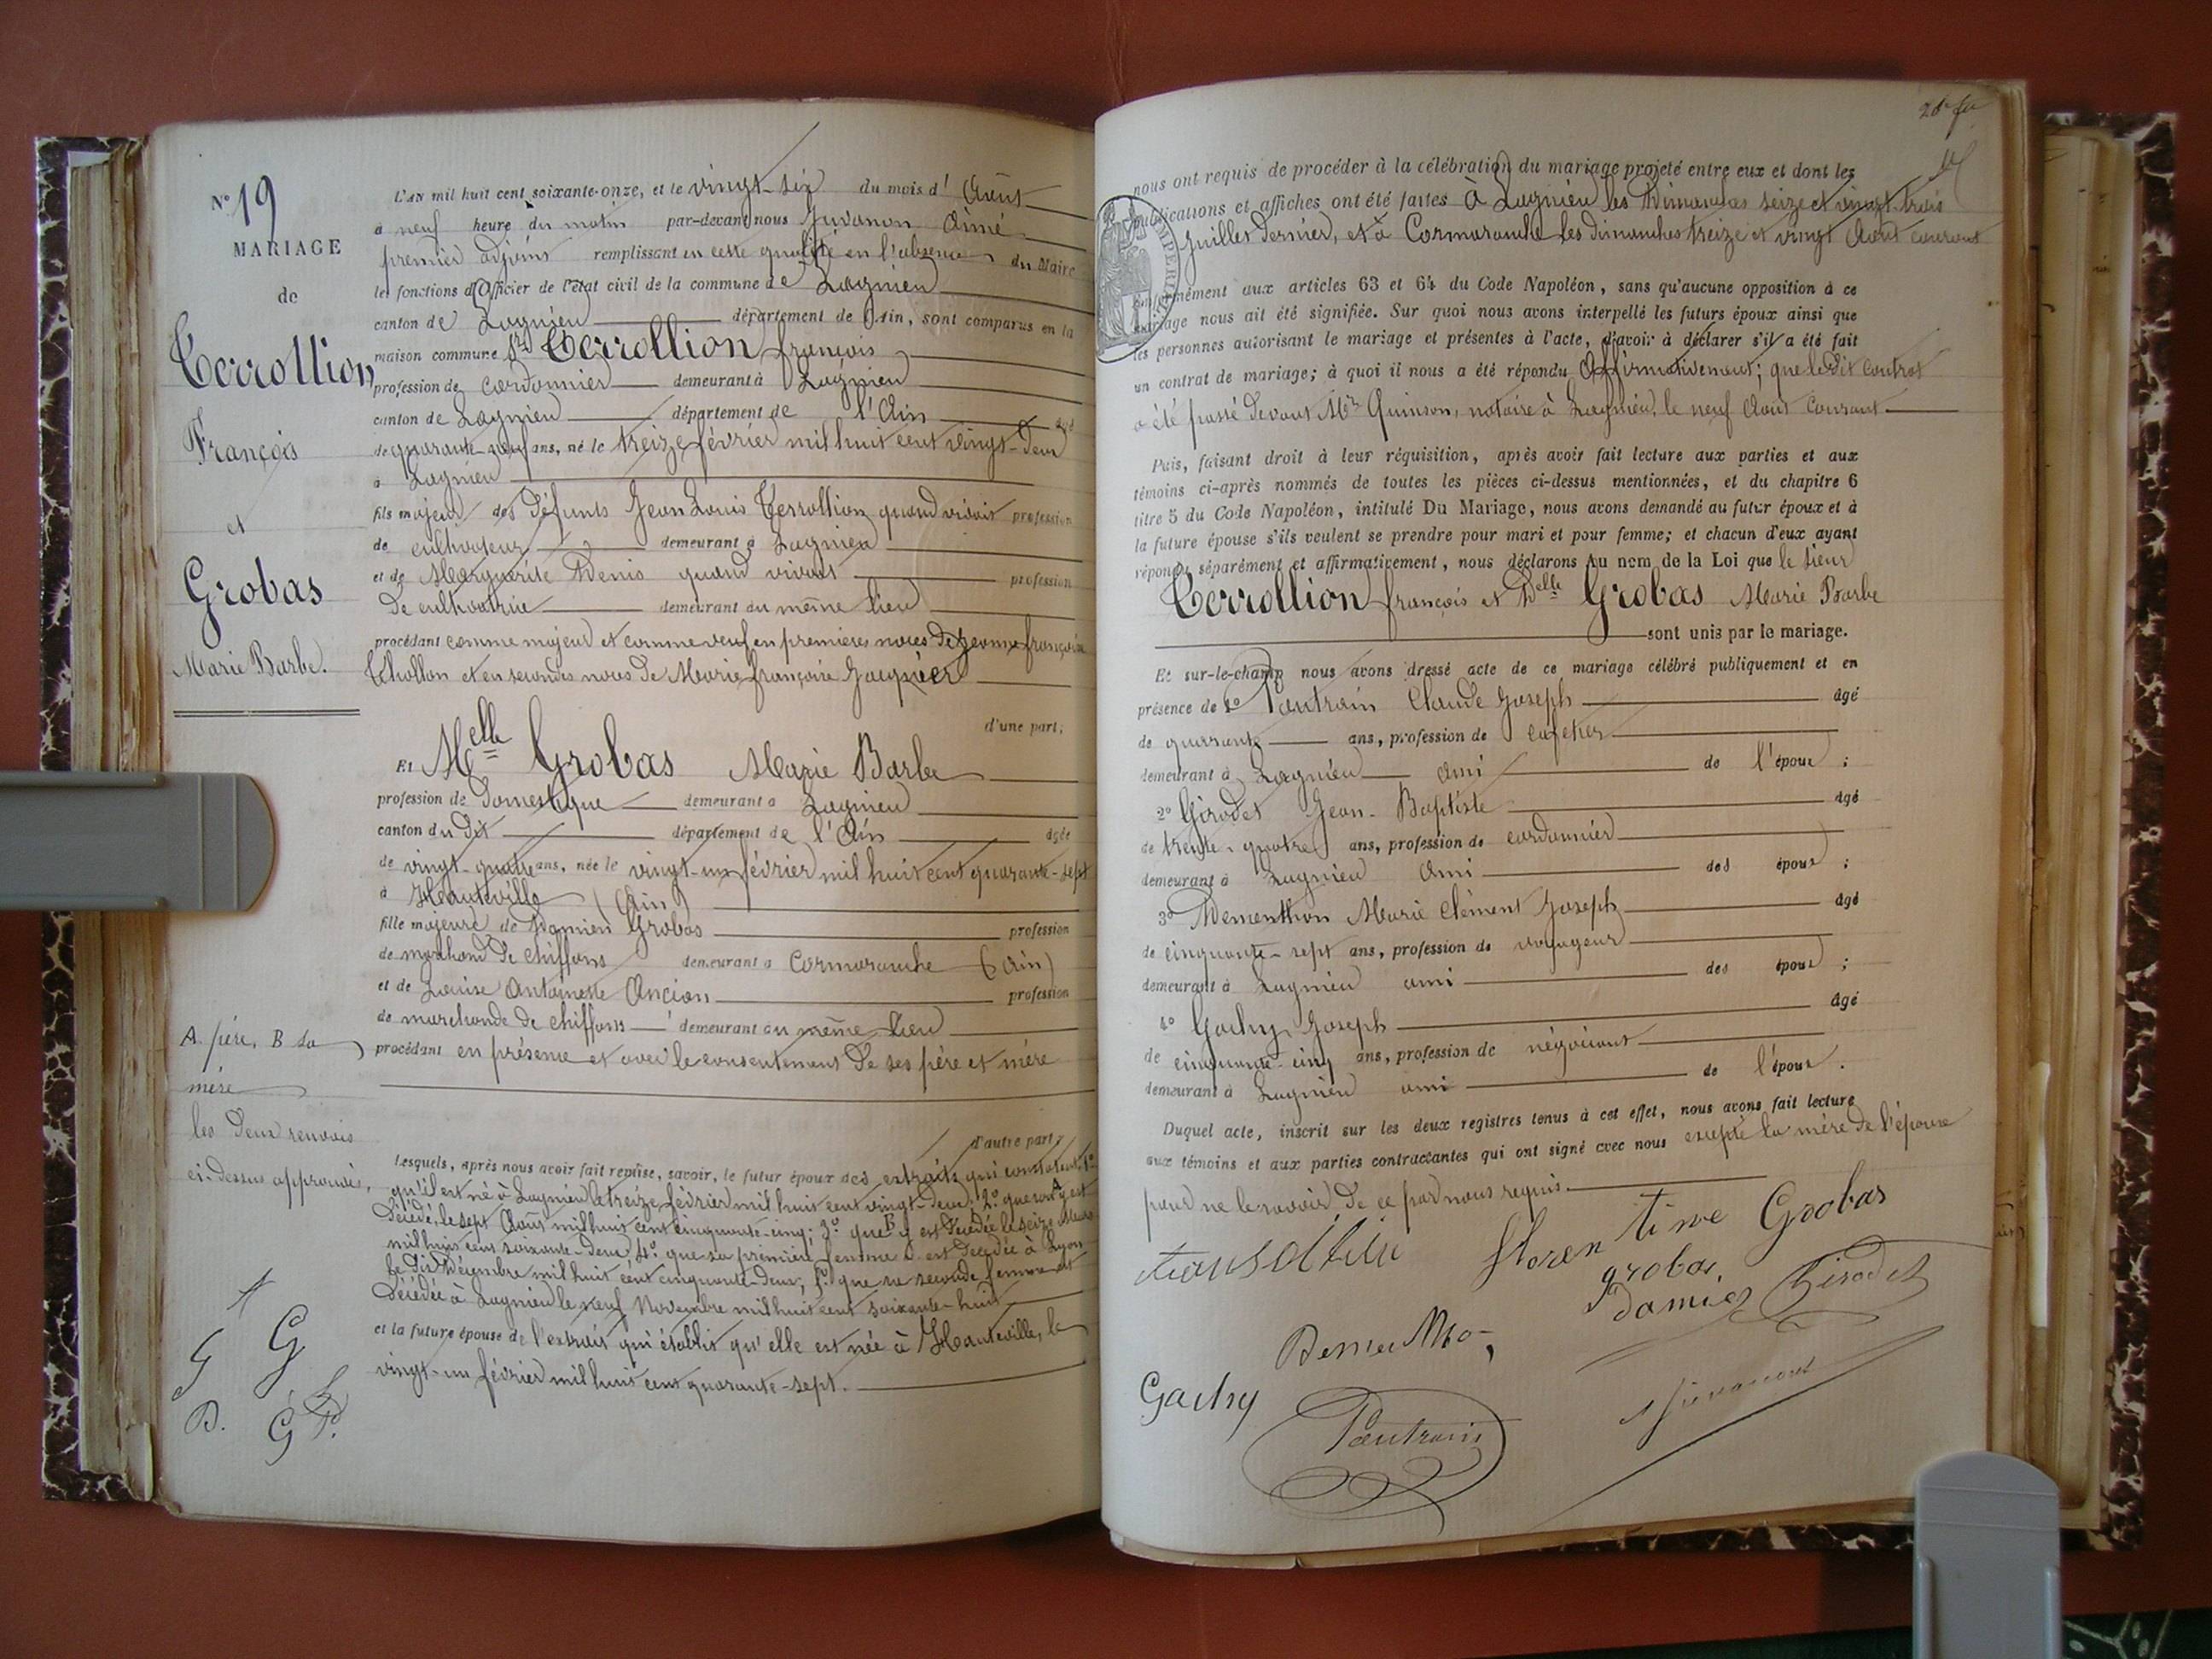 N° 19
MARIAGE
de
Terrollion
François
et
Grobas
Marie Barbe.
L'an mil huit cent soixante-onze, et le vingt-six du mois d'Août
à neuf heure du matin par-devant nous Juvanon Aimé
premier adjoint remplissant en cette qualité en l'absence du Maire
les fonctions d'Officier de l'état civil de la commune de Lagnieu
canton de Lagnieu département de l'Ain, sont comparus en la
maison commune Sr Terrollion françois
profession de cordonnier demeurant à Lagnieu
canton de Lagnieu département de l'Ain âgé
de quarante-neuf ans, né le treize février mil huit cent vingt-deux
à Lagnieu
fils majeur des défunts Jean Louis Terrollion quand vivait profession
de cultivateur demeurant à Lagnieu
et de Marguerite Denis quand vivait profession
de cultivatrice demeurant au même lieu
procédant comme majeur et comme veuf en premières noces de Jeanne françoise
Thollon et en secondes noces de Marie françoise
d'une part;
Et Melle Grobas Marie Barbe
profession de domestique demeurant à Lagnieu
canton du dit département de l'Ain âgée
de vingt-quatre ans, née le vingt-un février mil huit cent quarante-sept
à Hauteville (Ain)
fille majeure de Damien Grobas profession
de marchand de chiffons demeurant à Cormaranche (Ain)
et de Louise Antoinette Ancian profession
de marchande de chiffons demeurant au même lieu
procédant en présence et avec le consentement de ses père et mère
A père, B sa
mère
les deux renvois
ci-dessus approuvés,
d'autre part;
Lesquels, après nous avoir fait remise, savoir, le futur époux des extraits qui constatent 1°
qu'il est né à Lagnieu le treize février mil huit cent vingt-deux; 2° que son A y est
décédé, le sept Août mil huit cent cinquante-cinq; 3° que B y est décédée le seize Mars
mil huit cent soixante-deux; 4° que sa première femme est décédée à Lyon
le dix Décembre mil huit cent cinquante-deux; 5° que sa seconde femme est
décédée à Lagnieu le neuf Novembre mil huit cent soixante-huit
et la future épouse de l'extrait qui établit qu'elle est née à Hauteville, le
vingt-un février mil huit cent quarante-sept.
G G
D. G
nous ont requis de procéder à la célébration du mariage projeté entre eux et dont les
publications et affiches ont été faites à Lagnieu les Dimanches seize et vingt-trois
Juillet dernier, et à Cormaranche les dimanches treize et vingt Août courant
conformément aux articles 63 et 64 du Code Napoléon, sans qu'aucune opposition à ce
mariage nous ait été signifiée. Sur quoi nous avons interpellé les futurs époux ainsi que
les personnes autorisant le mariage et présentes à l'acte, d'avoir à déclarer s'il a été fait
un contrat de mariage; à quoi il nous a été répondu Affirmativement; que le dit contrat
a été passé devant Me Quinson, notaire à Lagnieu, le neuf Août courant
Puis, faisant droit à leur réquisition, après avoir fait lecture aux parties et aux
témoins ci-après nommés de toutes les pièces ci-dessus mentionnées, et du chapitre 6
titre 5 du Code Napoléon, intitulé Du Mariage, nous avons demandé au futur époux et à
la future épouse s'ils veulent se prendre pour mari et pour femme; et chacun d'eux ayant
répondu séparément et affirmativement, nous déclarons au nom de la Loi que le sieur
Terrollion françois et Delle Grobas Marie Barbe
sont unis par le mariage.
Et sur-le-champ nous avons dressé acte de ce mariage célébré publiquement et en
présence de 1° Pautrain Claude Joseph âgé
de quarante ans, profession de cafetier
demeurant à Lagnieu ami de l'époux;
2° Girodet Jean-Baptiste âgé
de trente-quatre ans, profession de cordonnier
demeurant à Lagnieu ami des époux;
3° Dementhon Marie Clément Joseph âgé
de cinquante-sept ans, profession de voyageur
demeurant à Lagnieu ami des époux;
4° Gachy Joseph âgé
de cinquante-cinq ans, profession de négociant
demeurant à Lagnieu ami de l'époux.
Duquel acte, inscrit sur les deux registres tenus à cet effet, nous avons fait lecture
aux témoins et aux parties contractantes qui ont signé avec nous excepté la mère de l'épouse
pour ne le savoir de ce par nous requis.
Florentine Grobas
grobas
damien Girodet
Gachy
Pautrain
Juvanon